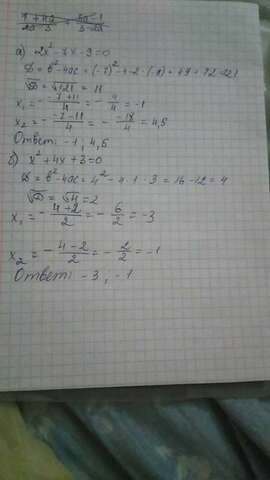 а) 2x² - 7x - 9 = 0
D = b² - 4ac = (-7)² - 4·2·(-9) = 49 + 72 = 121
√D = √121 = 11
x₁ = - (-7+11)/4 = - 4/4 = -1
x₂ = - (-7-11)/4 = - (-18)/4 = 4,5
Ответ: -1 ; 4,5
б) x² + 4x + 3 = 0
D = b² - 4ac = 4² - 4·1·3 = 16 - 12 = 4
√D = √4 = 2
x₁ = - (4+2)/2 = - 6/2 = -3
x₂ = - (4-2)/2 = - 2/2 = -1
Ответ: -3 ; -1